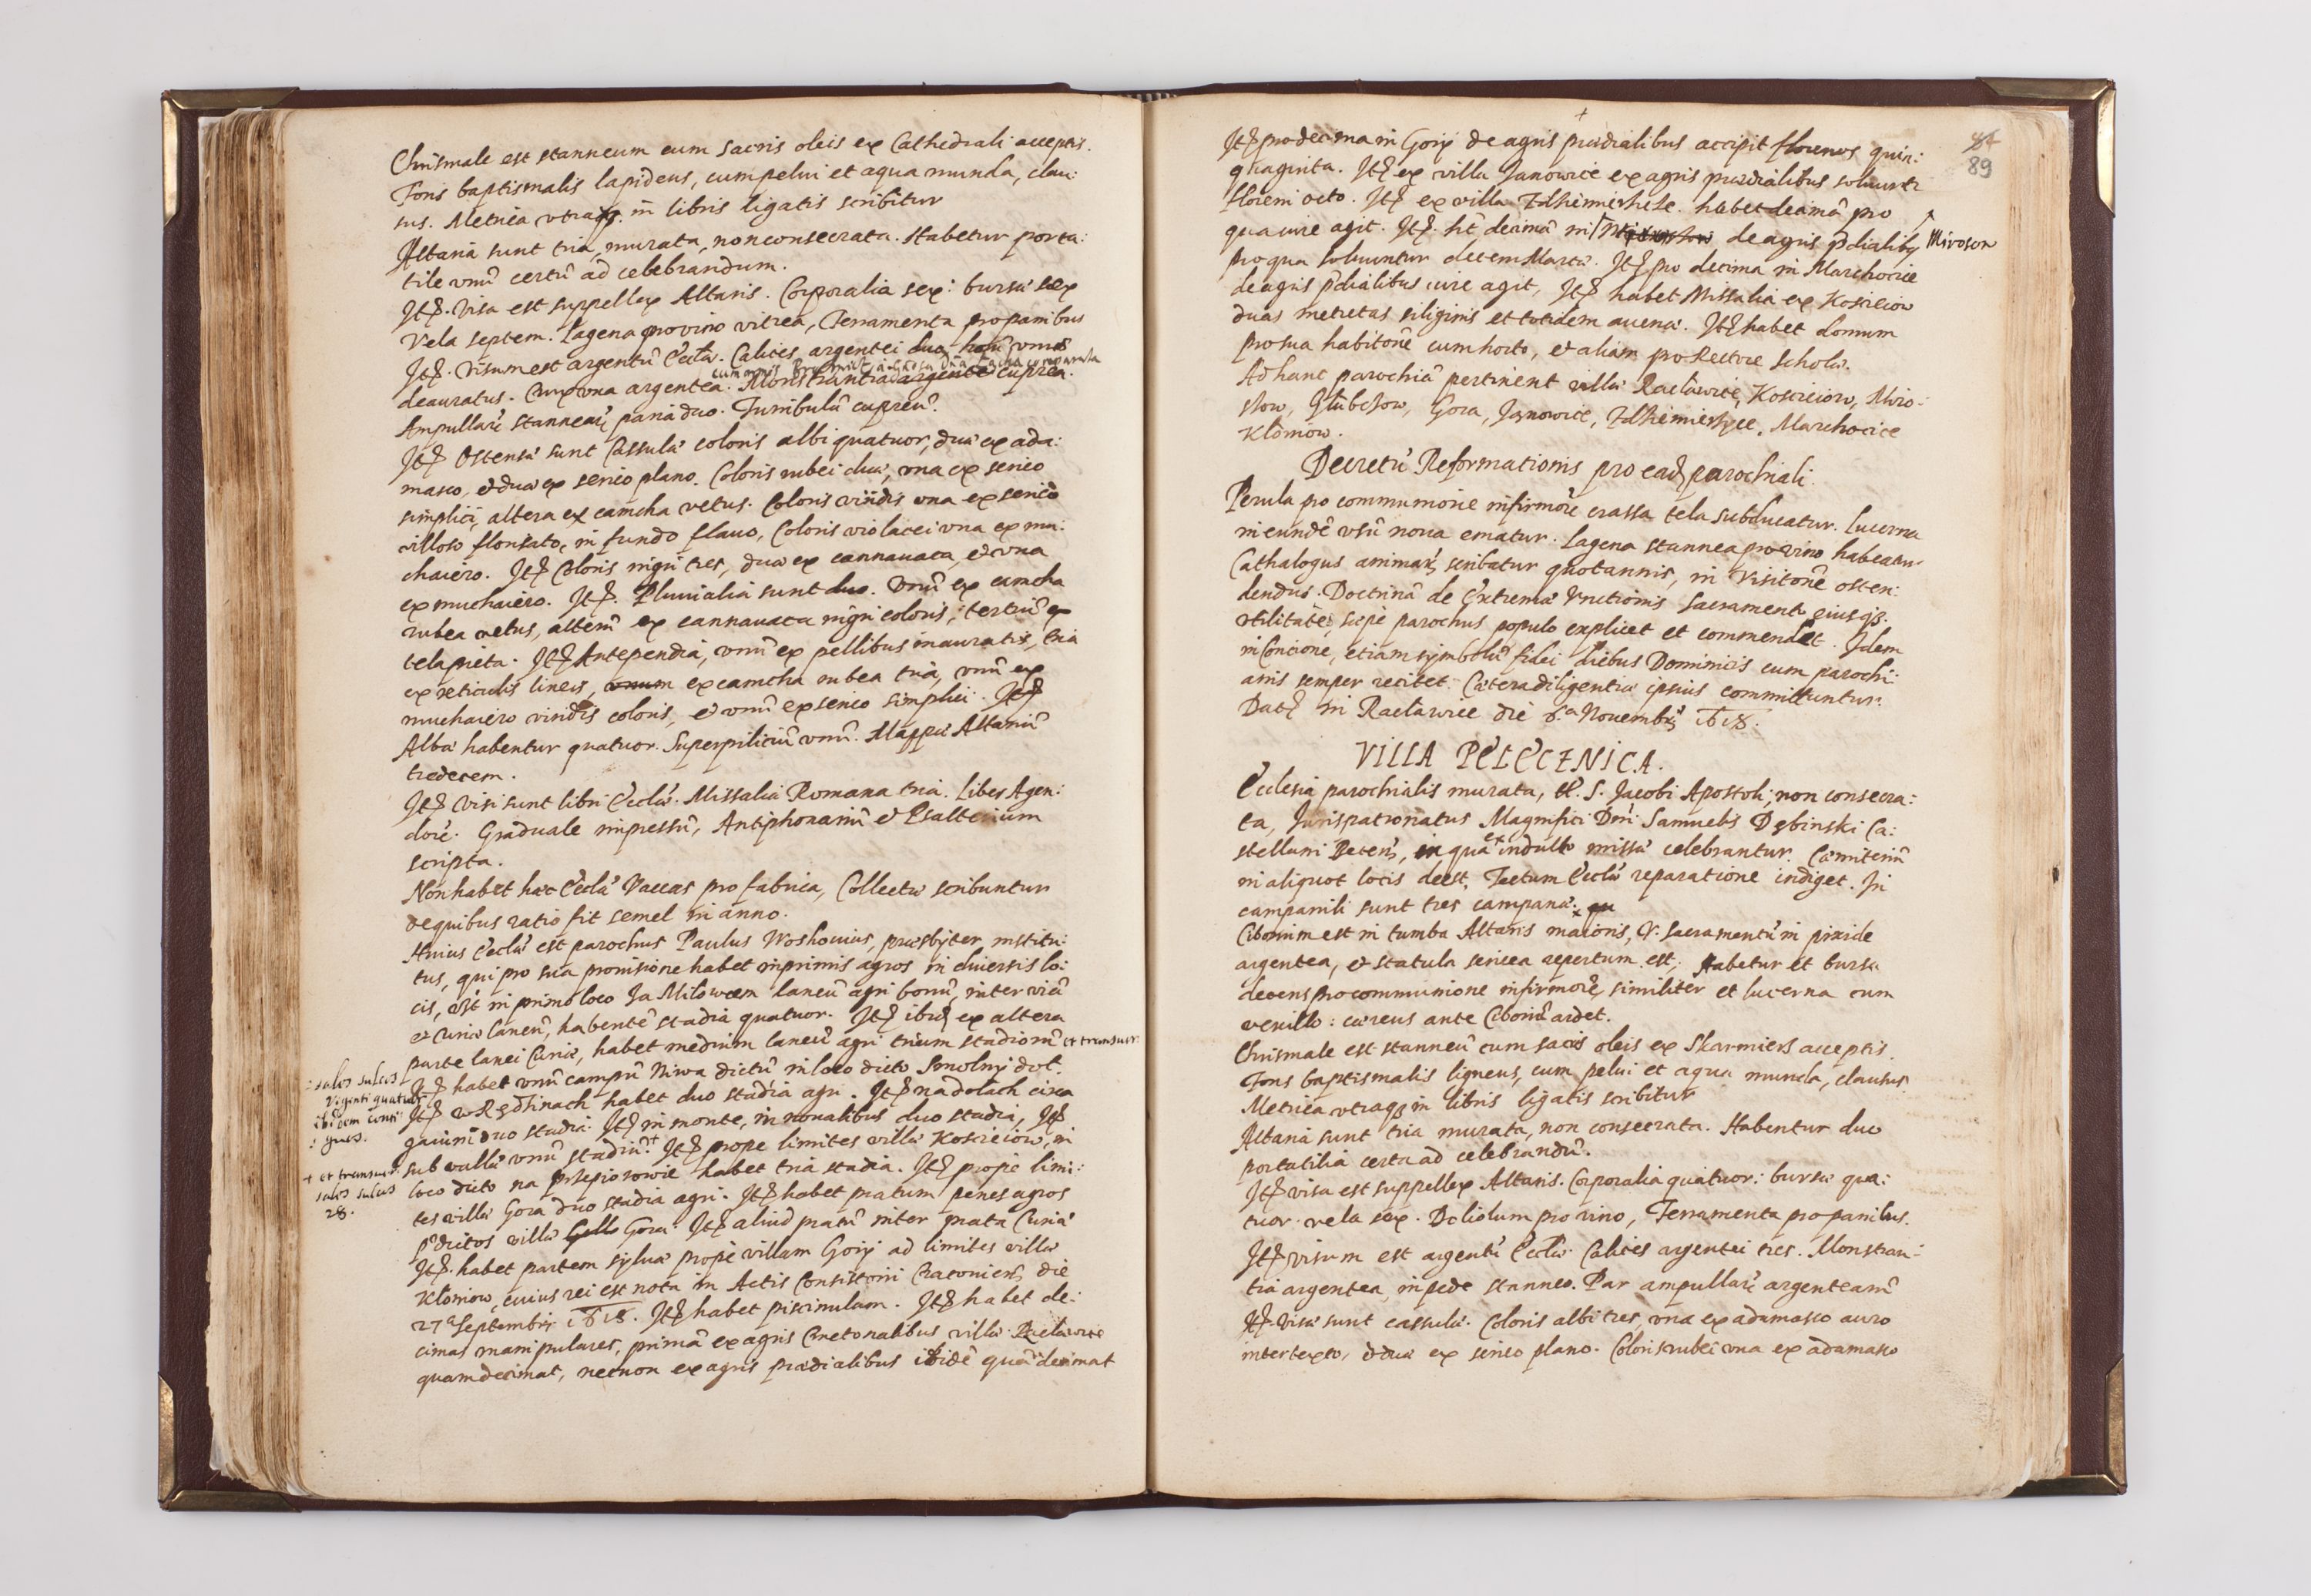 Chrismale est stanneum cum sacris oleis ex Cathedrali acceptis.
Fons baptismalis lapideus, cum pelui et aqua munda, clau:
sus. Metrica vtraq3. in libris ligatis scribitur
Altaria sunt tria, murata, non consecrata. Habetur porta:
tile vnũ certũ ad celebrandum.
Itẽ. Visa est suppellex Altaris. Corporalia sex: bursæ sex
Vela septem. Lagena pro vino vitrea, Ferramenta pro panibus
Itẽ. Visum est argentũ Eccłæ. Calices argentei duo, vnus
deauratus. Crux vna argentea. Monstrantia cuprea.
Ampullarũ stannearũ paria duo. Turribulũ cupreũ.
Itẽ Ostensæ sunt Cassulæ coloris albi quatuor, duæ ex ada:
masco, et duæ ex serico plano. Coloris rubei duæ, vna ex serico
simplici, altera ex camcha vetus. Coloris viridis vna ex serico
villoso florisato, in fundo flauo, Coloris violacei vna ex mu:
chaiero. Itẽ Coloris nigri tres, duæ ex cannauaca, et vna
ex muchaiero. Itẽ. Pluuialia sunt duo. Vnũ ex camcha
rubea vetus, alterũ ex cannauaca nigri coloris, tertiũ ex
tela picta. Itẽ Antependia, vnũ ex pellibus inauratis, tria
ex reticulis lineis, ex camcha rubea tria, vnũ ex
muchaiero viridis coloris, et vnũ ex serico simplici. Itẽ
Albæ habentur quatuor. Superpiliciũ vnũ. Mappæ Altariũ
tredecem.
Itẽ visi sunt libri Eccłæ. Missalia Romana tria. Liber Agen:
dorũ. Graduale impressũ, Antiphonariũ et Psalterium
scripta.
Non habet hæc Eccła Vaccas pro fabrica, Collectæ scribuntur
de quibus ratio fit semel in anno.
Huius Eccłæ est parochus Paulus Woshouius, præsbyter institu:
tus, qui pro sua prouisione habet inprimis agros in diuersis lo:
cis, vĩt in primo loco Za Milowcem laneũ agri bonũ, inter viã
et Curiæ laneũ, habentẽ stadia quatuor. Itẽ ibid ex altera
parte lanei Curiæ, habet medium laneũ agri trium stadiorũ et transuer:
: sales sulcos
Viginti quatuor
ibidem conti:
: guos.
Itẽ habet vnũ campũ Niwa dictũ in loco dicto Smolny doł.
Itẽ w Rędzinach habet duo stadia agri. Itẽ na dolach circa
gaium duo stadia. Itẽ in monte, in noualibus duo stadia, Itẽ
sub vallũ vnũ stadiũ.+ Itẽ prope limites villæ Koscieiow, in
+ et transuer:
sales sulcos
28.
loco dicto na przepiorowie habet tria stadia. Itẽ prope limi:
tes villæ Gora duo stadia agri. Itẽ habet pratum penes agros
villæ Gora. Itẽ aliud pratũ inter prata Curiæ
Itẽ. habet partem syluæ prope villam Gory ad limites villæ
Kłoniow, cuius rei est nota in Actis Consistorii Cracouien̄ die
27ᵃ Septembris 1618. Itẽ habet piscinulam. Itẽ habet de:
cimas manipulares, primã ex agris Cmetonalibus villæ Racławice
quam decimat, necnon ex agris prædialibus ibidẽ quã decimat
84
89
Itẽ pro decima in Gory de agris prædialibus accipit florenos quin:
quaginta. Itẽ ex villa Janowice ex agris prædialibus soluunt
floreni octo. Itẽ ex villa habet decimã pro
qua iure agit. Itẽ. hĩt decimã in de agris p̃dialibus Miroson
pro qua soluuntur decem Marcæ. Itẽ pro decima in Marchocice
de agris p̃dialibus iure agit, Itẽ habet Missalia ex Kosciciow
duas metretas siliginis et totidem auenæ. Itẽ habet domum
pro sua habitõne cum horto, et aliam pro Rectore scholæ.
Ad hanc parochiã pertinent villæ Racławice, Kosciciow, Miro:
slow, Głubczow, Gora, Janowice, Marchocice
Kłoniow.
Decretũ Reformationis pro ead parochiali.
Perula pro communione infirmorũ crassa tela subducatur. Lucerna
in eundẽ vsũ noua ematur. Lagena stannea pro vino habeatur
Cathalogus animarũ scribatur quotannis, in Visitõne osten:
dendus. Doctrinã de Extremæ Vnctionis Sacramento eiusq3.
vtilitate, sæpe parochus populo explicet et commendet. Idem
in Concione, etiam symbolũ fidei diebus Dominicis cum parochi:
anis semper recitet. Cætera diligentiæ ipsius committuntur.
Dat in Racławice die 6.ᵃ Nouembris 1618.
VILLA PELECZNICA.
Ecclesia parochialis murata, tĩt. S. Jacobi Apostoli, non consecra:
ta, Jurispatronatus Magnifici Dñi Samuelis Dębinski Ca:
stellani Becen̄, in qua ex indulto missæ celebrantur. Cœmiteriũ
in aliquot locis deest. Tectum Eccłæ reparatione indiget. In
campanili sunt tres campanæ.
Ciborium est in tumba Altaris maioris, V. Sacramentũ in pixide
argentea, et statula sericea repertum est, Habetur et bursa
decens pro communione infirmorũ, similiter et lucerna cum
vexillo: cæreus ante Ciboriũ ardet.
Chrismale est stanneũ cum sacris oleis ex Skarmiers acceptis.
Fons baptismalis ligneus, cum pelui et aqua munda, clausus
Metrica vtraq3 in libris ligatis scribitur
Altaria sunt tria murata, non consecrata. Habentur duo
portatilia certa ad celebrandũ.
Itẽ visa est suppellex Altaris. Corporalia quatuor: bursæ qua:
tuor. vela sex. Doliolum pro vino, Ferramenta pro panibus.
Itẽ visum est argentũ Eccłæ. Calices argentei tres. Monstran:
tia argentea, in pede stanneo. Par ampullarũ argentearũ
Itẽ. Visæ sunt cassulæ. Coloris albi tres, vna ex adamasco auro
intertexto, et duæ ex serico plano. Coloris rubei vna ex adamasco